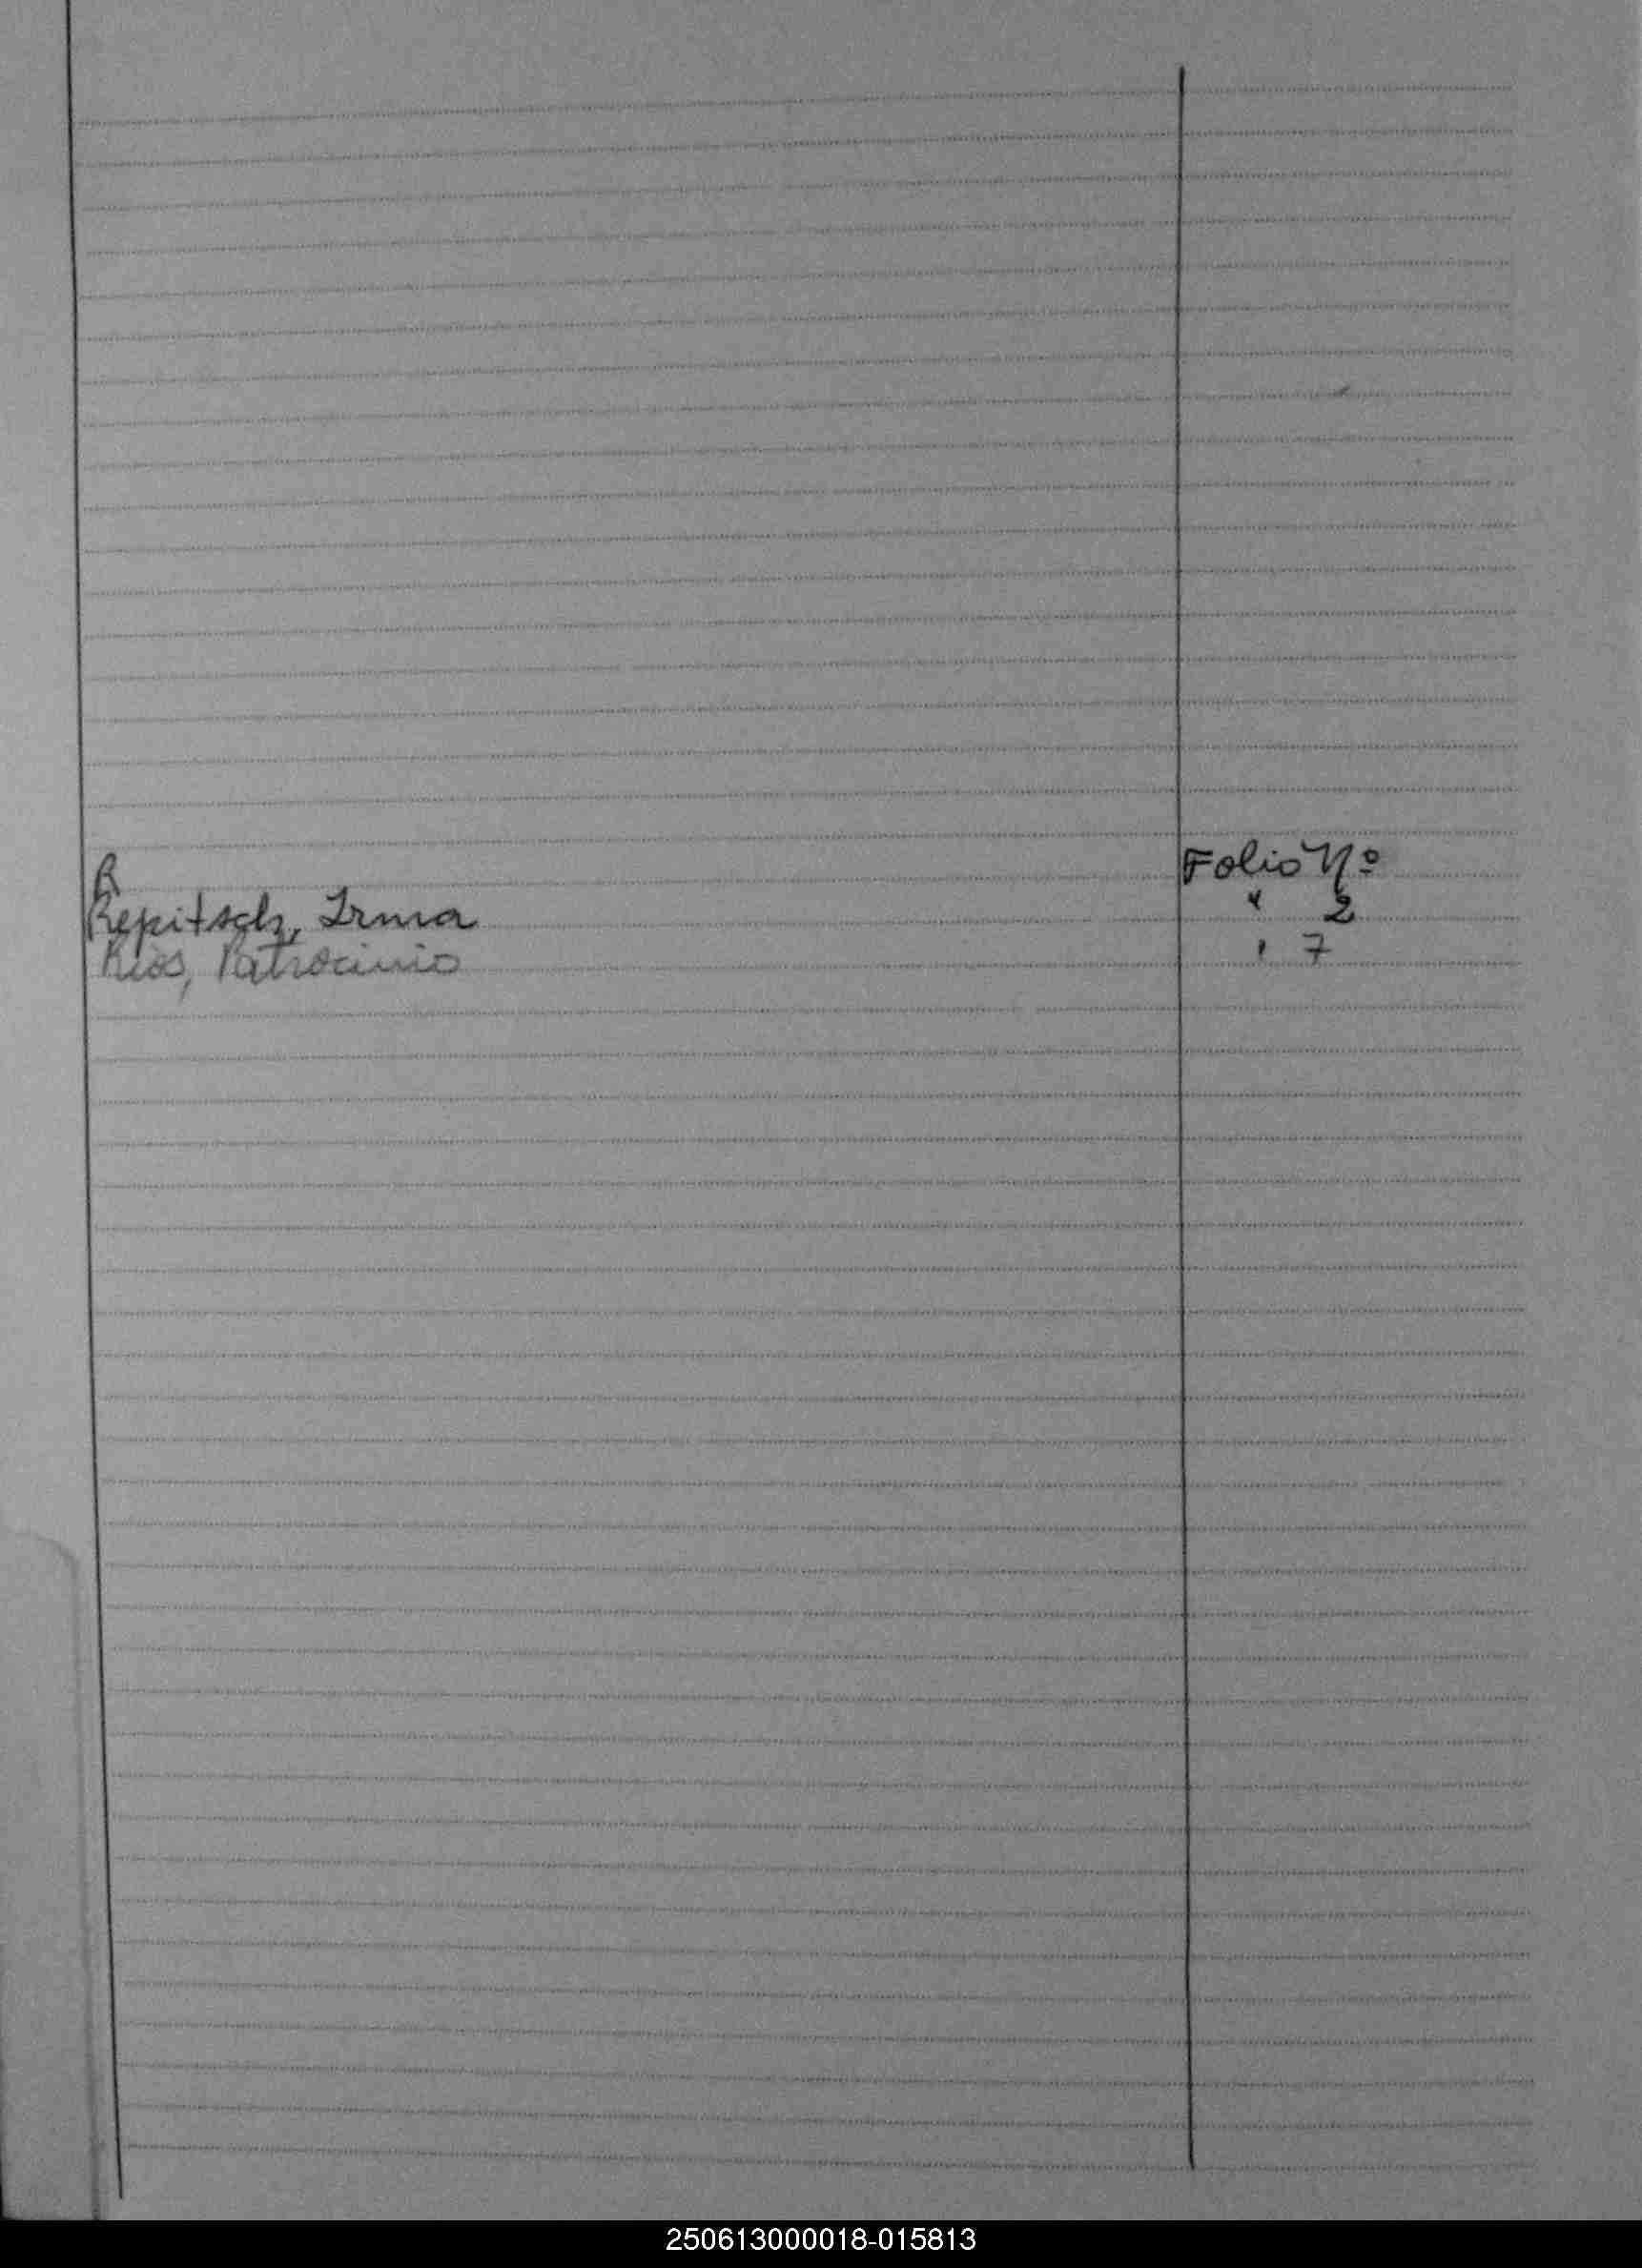 R Folio Nº
Repitsch, Irma " 2
Rios, Patrocinio " 7
250613000018-015813